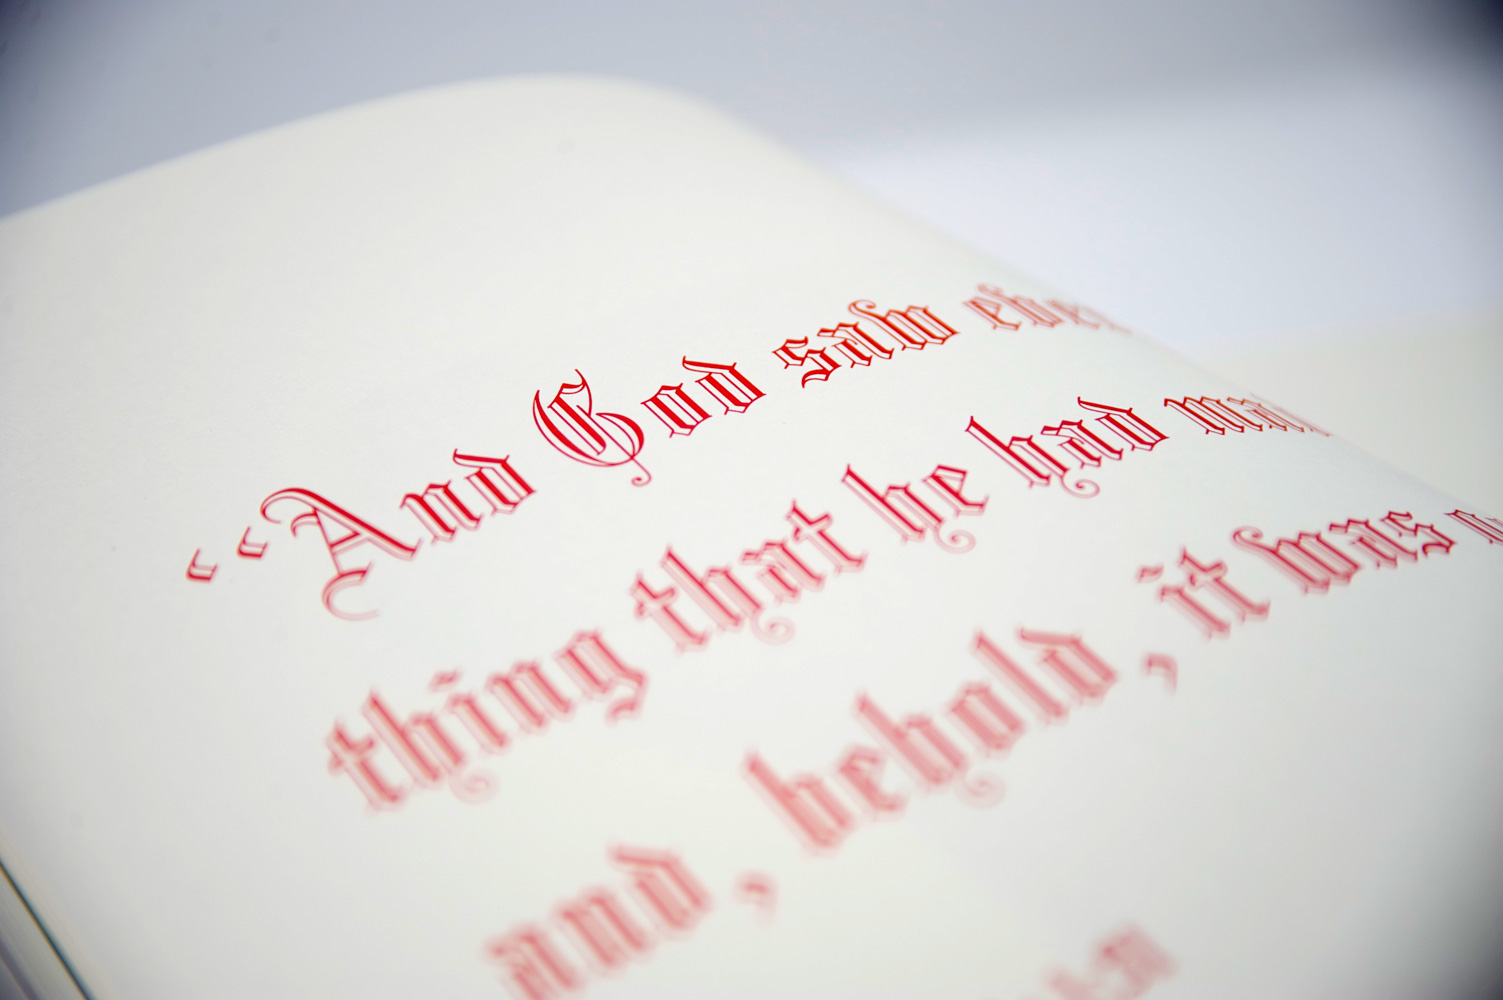 “And God saw ever
thing that he had mad
and, behold, it was